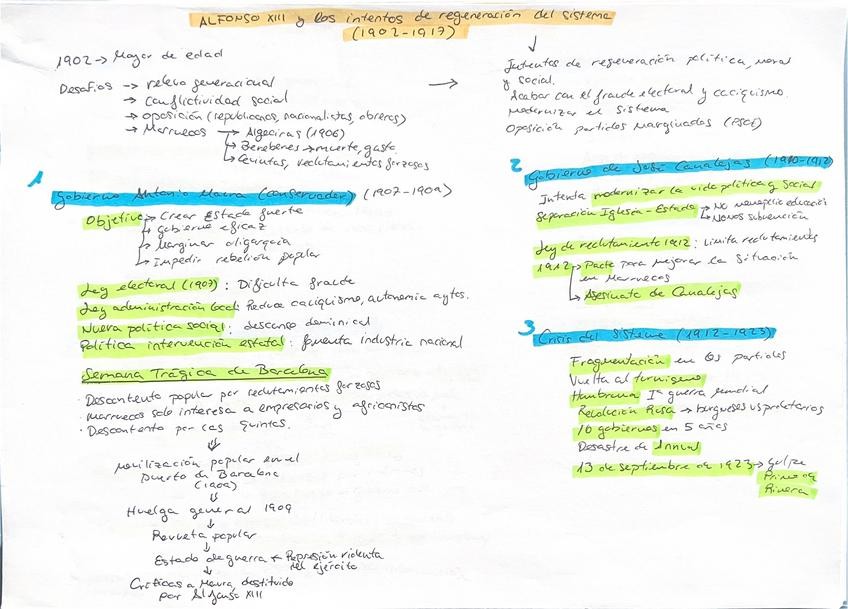 ALFONSO XIII y los intentos de regeneración del sistema
(1902-1917)
1902 → Mayor de edad
Desafíos → relevo generacional
→ conflictividad social
→ oposición (republicanos, nacionalistas, obreros)
→ Marruecos → Algeciras (1906)
→ Bereberes → muerte, gasto
→ Quintas, reclutamientos forzosos
→
↓
Intentos de regeneración política, moral
y social.
Acabar con el fraude electoral y caciquismo.
Modernizar el sistema
Oposición partidos marginados (PSOE)
1
Gobierno Antonio Maura (conservador) (1907-1909)
Objetivo → Crear Estado fuerte
→ gobierno eficaz
→ Marginar oligarquía
→ Impedir rebelión popular
Ley electoral (1907): Dificulta fraude
Ley administración local: Reduce caciquismo, autonomía aytos.
Nueva política social: descanso dominical
Política intervención estatal: fomenta industria nacional
Semana Trágica de Barcelona
· Descontento popular por reclutamientos forzosos
· Marruecos solo interesa a empresarios y africanistas
· Descontento por las quintas.
⇓
Movilización popular en el
puerto de Barcelona
(1909)
⇓
Huelga general 1909
↓
Revuelta popular
↓
Estado de guerra + Represión violenta
del ejército
↓
Críticas a Maura, destituido
por Alfonso XIII
2
Gobierno de José Canalejas (1910-1912)
Intenta modernizar la vida política y social
Separación Iglesia-Estado → No monopolio educación
→ No más subvención
Ley de reclutamiento 1912: Limita reclutamientos
1912 → Pacto para mejorar la situación
en Marruecos
→ Asesinato de Canalejas
3 Crisis del sistema (1912-1923)
Fragmentación en los partidos
Vuelta al turnismo
Hambruna Iª guerra mundial
Revolución Rusa → burgueses vs proletarios
10 gobiernos en 5 años
Desastre de Annual
13 de septiembre de 1923 → golpe
Primo de
Rivera